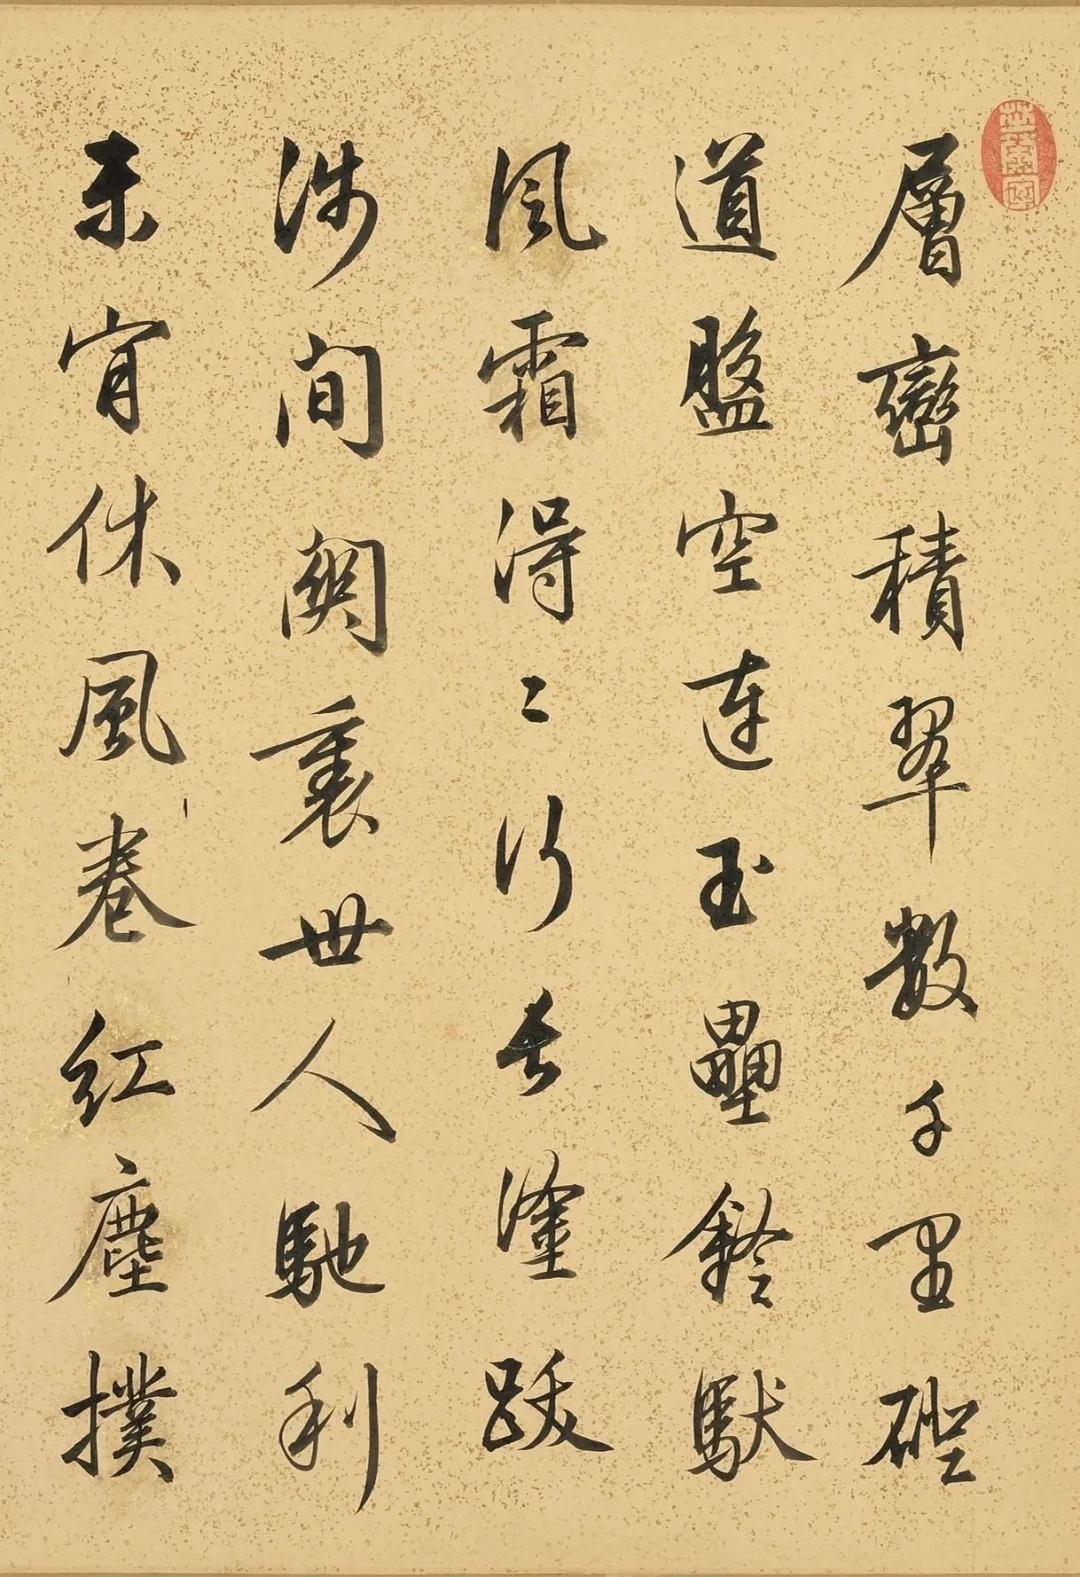 層巒積翠數千里磴
道盤空連玉壘鈴馱
風霜得〻行長塗跋
涉間關裏世人馳利
未肯休風卷紅塵撲